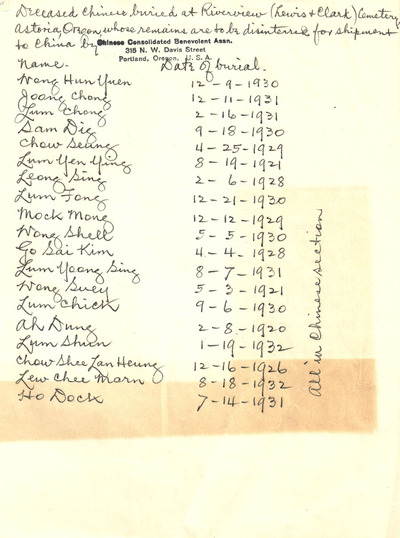 Deceased Chinese buried at Riverview (Lewis & Clark) Cemetery,
Astoria, Oregon, whose remains are to be disinterred for shipment
to China by Chinese Consolidated Benevolent Assn.
315 N. W. Davis Street
Portland, Oregon, U. S. A.
Name. Date of burial.
Wong Hun Yuen 12-9-1930
Joong Chong 12-11-1931
Lum Chong 2-16-1931
Sam Dig 9-18-1930
Chow Seung 4-25-1929
Lum Yen Ying 8-19-1921
Leong Sing 2-6-1928
Lum Fong 12-21-1930
Mock Mong 12-12-1929
Wong Shell 5-5-1930
Go Sai Kim 4-4-1928
Lum Yoong Sing 8-7-1931
Wong Suey 5-3-1921
Lum Chick 9-6-1930
Ah Dung 2-8-1920
Lum Shun 1-19-1932
Chow Shee Lan Heung 12-16-1926
Lew Chee Marn 8-18-1932
Ho Dock 7-14-1931
All in Chinese section